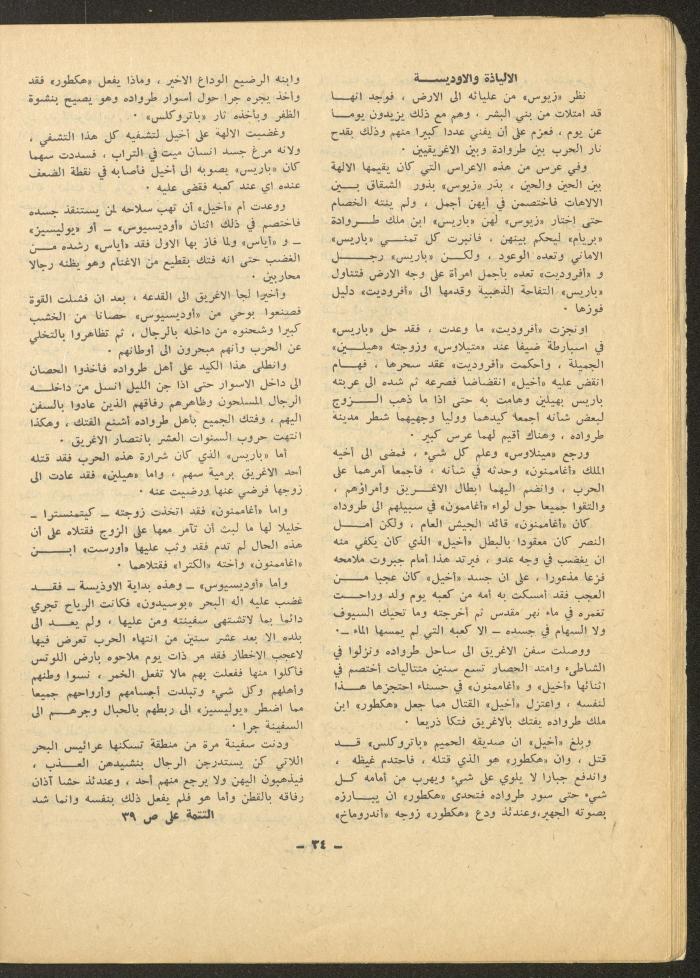 الالياذة والاوديســـة
نظر «زيوس» من عليائه الى الارض ، فوجد انهــا
قد امتلات من بني البشر ، وهم مع ذلك يزيدون يومــا
عن يوم ، فعزم على أن يفني عددا كبيرا منهم وذلك بقدح
نار الحرب بين طروادة وبين الاغريقيين ٠
وفي عرس من هذه الاعراس التي كان يقيمها الالهة
بين الحين والحين ، بذر «زيوس» بذور الشقاق بــين
الالاهات فاختصمن في أيهن أجمل ، ولم ينته الخصام
حتى إختار «زيوس» لهن «باريس» ابن ملك طــروادة
«بريام» ليحكم بينهن ، فانبرت كل تمنــي «باريس»
الاماني وتعده الوعود ، ولكــن «باريس» رجــــل
و «أفروديت» تعده بأجمل امرأة على وجه الارض فتناول
«باريس» التفاحة الذهبية وقدمها الى «أفروديت» دليل
فوزها ٠
اونجزت «أفروديت» ما وعدت ، فقد حل «باريس»
في اسبارطة ضيفا عند «متيلاوس» وزوجته «هيلــين»
الجميلة ، وأحكمت «أفروديت» عقد سحرها ، فهــام
انقض عليه «أخيل» انقضاضا فصرعه ثم شده الى عربته
باريس بهيلين وهامت به حتى اذا ما ذهب الــــزوج
لبعض شأنه أجمعة كيدهما ووليا وجهيهما شطر مدينة
طرواده ، وهناك أقيم لهما عرس كبير ٠
ورجع «مينلاوس» وعلم كل شيء ، فمضى الى أخيه
الملك «أغاممنون» وحدثه في شأنه ، فأجمعا أمرهما على
الحرب ، وانضم اليهما ابطال الاغــريق وأمراؤهم ،
والتقوا جميعا حول لواء «أغاممون» في سبيلهم الى طرواده
كان «أغاممنون» قائد الجيش العام ، ولكن أمــــل
النصر كان معقودا بالبطل «أخيل» الذي كان يكفي منه
ان يغضب في وجه عدو ، فيرتد هذا أمام جبروت ملامحه
فزعا مذعورا ، على ان جسد «أخيل» كان عجبا مـــن
العجب فقد أمسكت به أمه من كعبه يوم ولد وراحــت
تغمره في ماء نهر مقدس ثم أخرجته وما تحيك السيوف
ولا السهام في جسده ــ الا كعبه التي لم يمسها الماء ــ٠
ووصلت سفن الاغريق الى ساحل طرواده ونزلوا في
الشاطىء وامتد الحصار تسع سنين متتاليات أختصم في
اثنائها «أخيل» و «أغاممنون» في حسناء احتجزها هــذا
لنفسه ، واعتزل «أخيل» القتال مما جعل «هكطور» ابن
ملك طرواده يفتك بالاغريق فتكا ذريعا ٠
وبلغ «أخيل» ان صديقه الحميم «باتروكلس» قــد
قتل ، وان «هكطور» هو الذي قتله ، فاحتدم غيظه ،
واندفع جبارا لا يلوي على شيء ويهرب من أمامه كــل
شيء حتى سور طرواده فتحدى «هكطور» ان يبــارزه
بصوته الجهير،وعندئذ ودع «هكطور» زوجه «أندروماخ»
وابنه الرضيع الوداع الاخير ، وماذا يفعل «هكطور» فقد
وأخذ يجره جرا حول أسوار طرواده وهو يصيح بنشوة
الظفر وبأخذه ثار «باتروكلس» ٠
وغضبت الالهة على أخيل لتشفيه كل هذا التشفي ،
ولانه مرغ جسد انسان ميت في التراب ، فسددت سهما
كان «باريس» يصوبه الى أخيل فأصابه في نقطة الضعف
عنده اي عند كعبه فقضى عليه ٠
ووعدت أم «أخيل» أن تهب سلاحه لمن يستنقذ جسده
فاختصم في ذلك اثنان «أوديسيوس» ــ أو «يوليسيز»
ــ و «أياس» ولما فاز بها الاول فقد «أياس» رشده مــن
الغضب حتى انه فتك بقطيع من الاغنام وهو يظنه رجالا
محاربين ٠
وأخيرا لجا الاغريق الى القدعه ، بعد ان فشلت القوة
فصينعوا بوحي من «أوديسيوس» حصانا من الخشب
كبيرا وشحنوه من داخله بالرجال ، ثم تظاهروا بالتخلي
عن الحرب وأنهم مبحرون الى أوطانهم ٠
وانطلى هذا الكيد على أهل طرواده فأخذوا الحصان
الى داخل الاسوار حتى اذا جن الليل انسل من داخلــه
الرجال المسلحون وظاهرهم رفاقهم الذين عادوا بالسفن
اليهم ، وفتك الجميع بأهل طرواده أشنع الفتك ، وهكذا
انتهت حروب السنوات العشر بانتصار الاغريق ٠
أما «باريس» الذي كان شرارة هذه الحرب فقد قتله
أحد الاغريق برمية سهم ، واما «هيلين» فقد عادت الى
زوجها فرضي عنها ورضيت عنه ٠
واما «أغاممنون» فقد اتخذت زوجته ــ كيتمنسترا ــ
خليلا لها ما لبث أن تآمر معها على الزوج فقتلاه على أن
هذه الحال لم تدم فقد وثب عليها «أورست» ابـــن
«اغاممنون» وأخته «الكترا» فقتلاهما ٠
واما «أوديسيوس» ــ وهذه بداية الاوذيسة ــ فقــد
غضب عليه اله البحر «بوسيدون» فكانت الرياح تجري
دائما بما لاتشتهى سفينته ومن عليها ، ولم يعــد الى
بلده الا بعد عشر سنين من انتهاء الحرب تعرض فيها
لاعجب الاخطار فقد مر ذات يوم ملاحوه بأرض اللوتس
فأكلوا منها ففعلت بهم مالا تفعل الخمر ، نسوا وطنهم
وأهلهم وكل شيء وتبلدت أجسامهم وأرواحهم جميعا
مما اضطر «يوليسيز» الى ربطهم بالحبال وجرهــم الى
السفينة جرا ٠
ودنت سفينة مرة من منطقة تسكنها عرائيس البحر
اللاتي كن يستدرجن الرجال بنشيدهن العــذب ،
فيذهبون اليهن ولا يرجع منهم أحد ، وعندئذ حشا آذان
رفاقه بالقطن وأما هو فلم يفعل ذلك بنفسه وانما شد
التتمة على ص ٣٩
ــ ٣٤ ــ